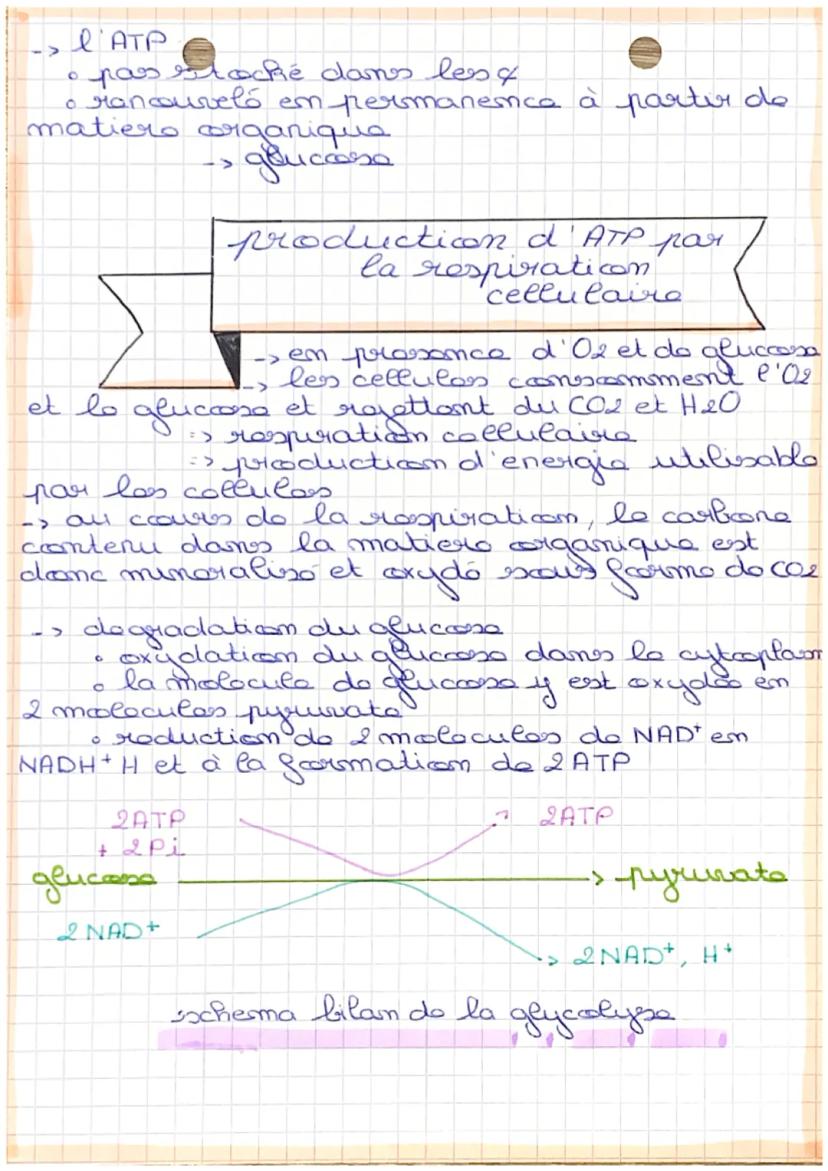 -> l'ATP
• pas stocké dans les
• renouvelé en permanence à partir de
matiere organique
-> glucose
production d'ATP par
la respiration
cellulaire
-> en presence d'O2 et de glucose
-> les cellules consomment l'O2
et le glucose et rejettent du CO2 et H2O
=> respiration cellulaire
=> production d'energie utilisable
par les cellules
-> au cours de la respiration, le carbone
contenu dans la matiere organique est
donc mineralisé et oxydé sous forme de CO2
-> degradation du glucose
• oxydation du glucose dans le cytoplasm
• la molecule de glucose y est oxydée en
2 molecules pyruvate
• reduction de 2 molecules de NAD+ en
NADH+ H et à la formation de 2 ATP
2ATP
+ 2Pi
2ATP
glucose -> pyruvate
2 NAD+
2NAD+, H+
schema bilan de la glycolyse